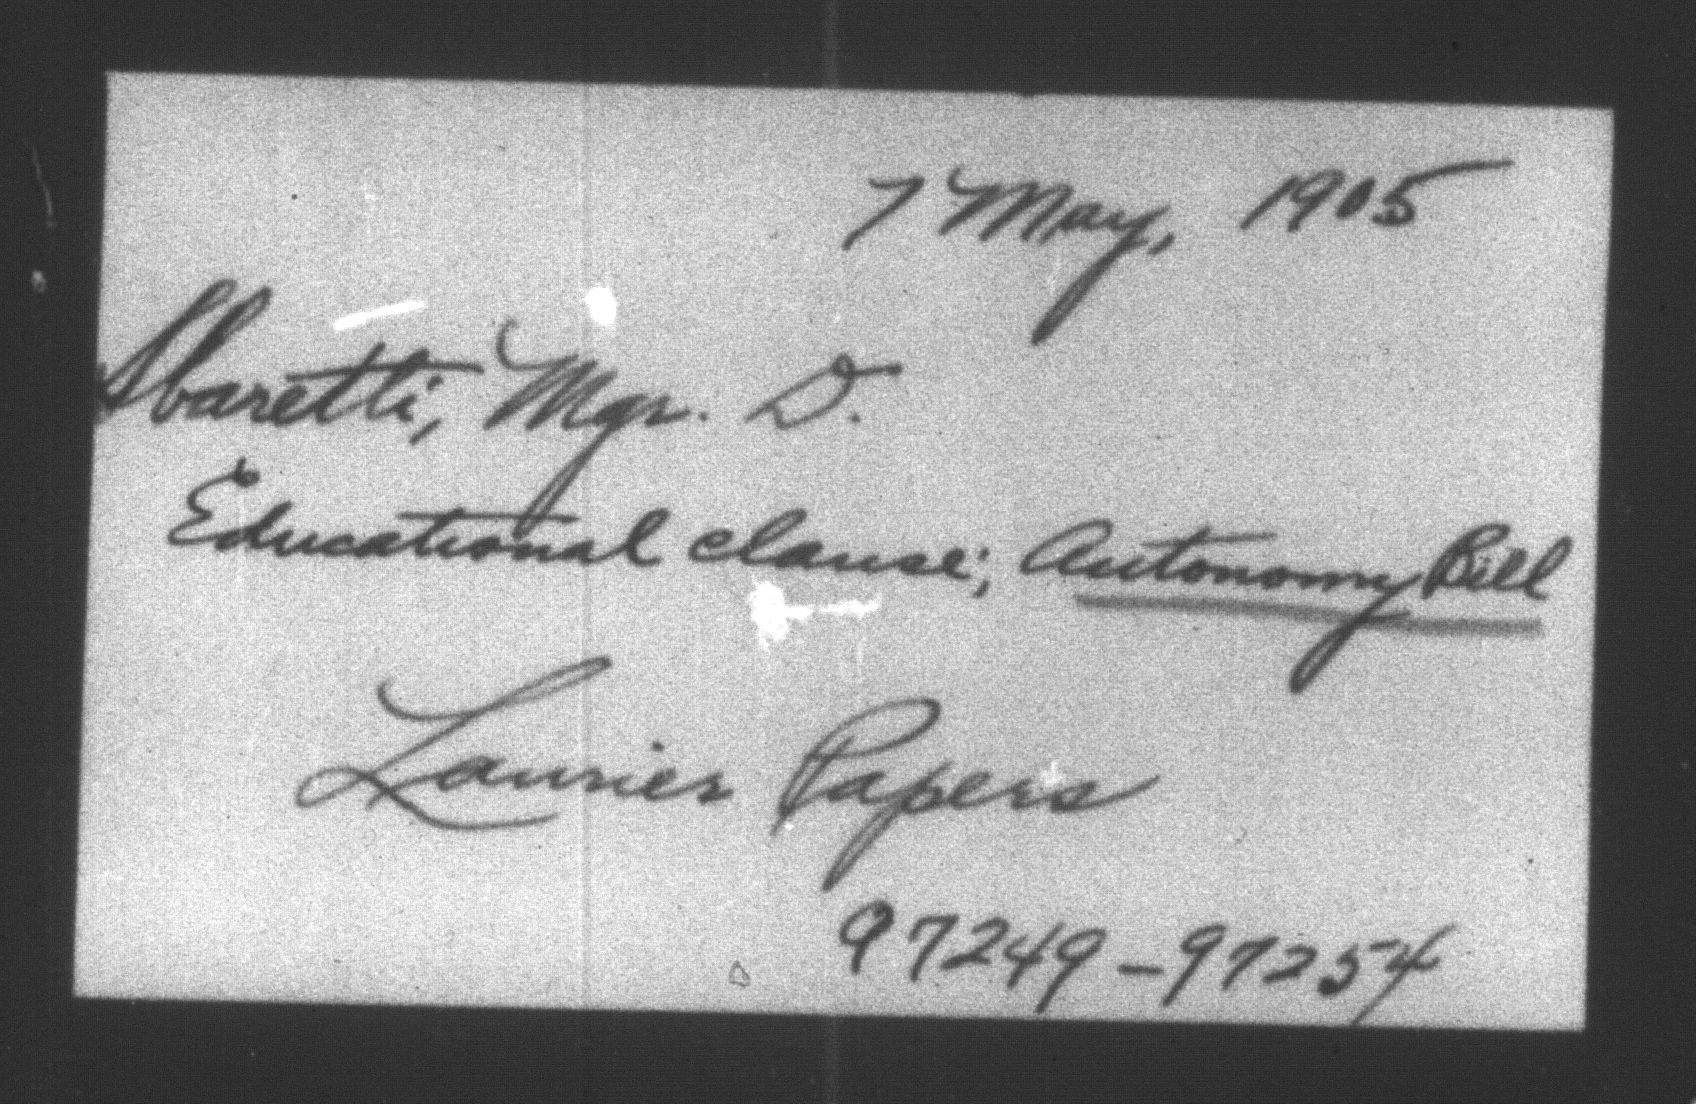 7 May, 1905
Sbaretti, Mgr. D.
Educational clause; Autonomy Bill
Laurier Papers
97249-97254